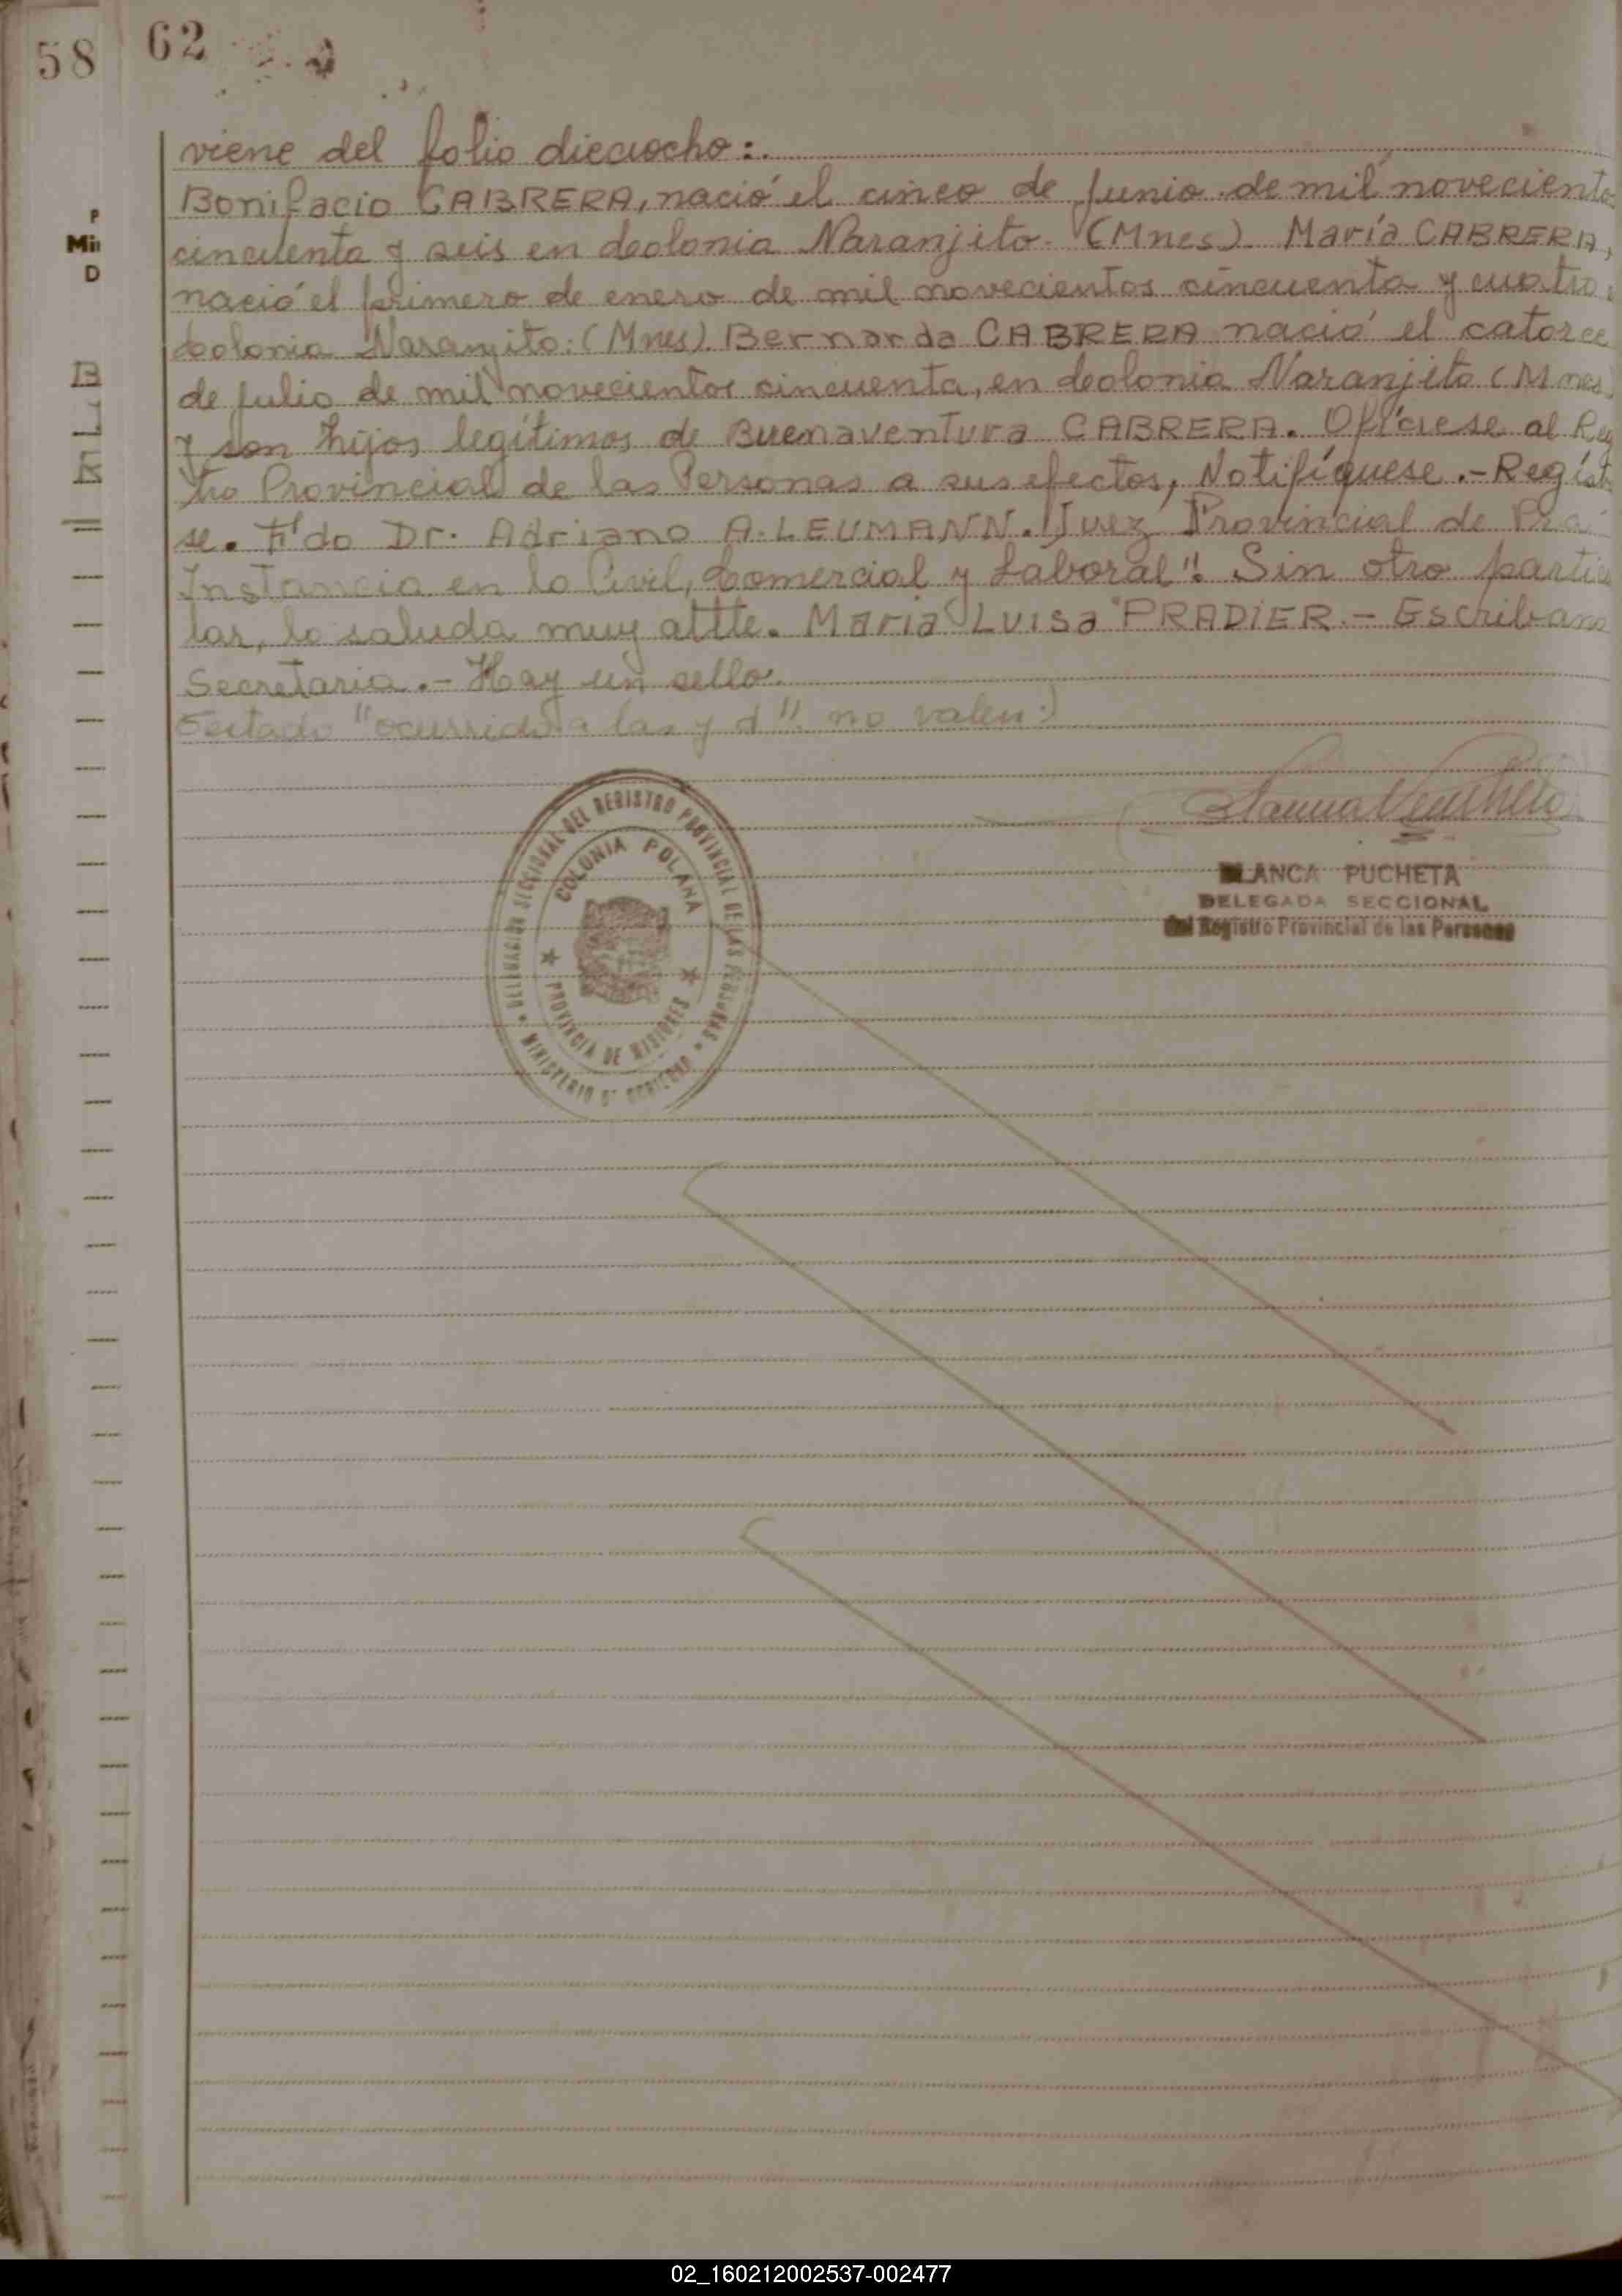 58
62
P
Min
D
viene del folio dieciocho:.
Bonifacio CABRERA, nació el cinco de Junio de mil noveciento
cincuenta y seis en Colonia Naranjito. (Mnes). María CABRERA,
nació el primero de enero de mil novecientos cincuenta y cuatro
Colonia Naranjito: (Mnes). Bernarda CABRERA nació el catorce
de julio de mil novecientos cincuenta, en Colonia Naranjito (Mnes
y son hijos legítimos de Buenaventura CABRERA. Ofíciese al Reg
tro Provincial de las Personas a sus efectos, Notifíquese.- Regíst
se. Fdo Dr. Adriano A. LEUMANN. Juez Provincial de
Instancia en lo Civil, Comercial y Laboral". Sin otro particu
lar, lo saluda muy attte. María Luisa PRADIER.- Escribana
Secretaria.- Hay un sello.
Testado "ocurrido a las y d". no valen:)
DELEGACION SECCIONAL DEL REGISTRO PROVINCIAL DE LAS PERSONAS
COLONIA POLANA
PROVINCIA DE MISIONES
MINISTERIO DE GOBIERNO
BLANCA PUCHETA
DELEGADA SECCIONAL
del Registro Provincial de las Personas
02_160212002537-002477